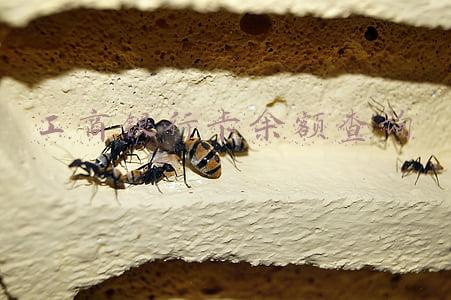 工商银行卡余额查询